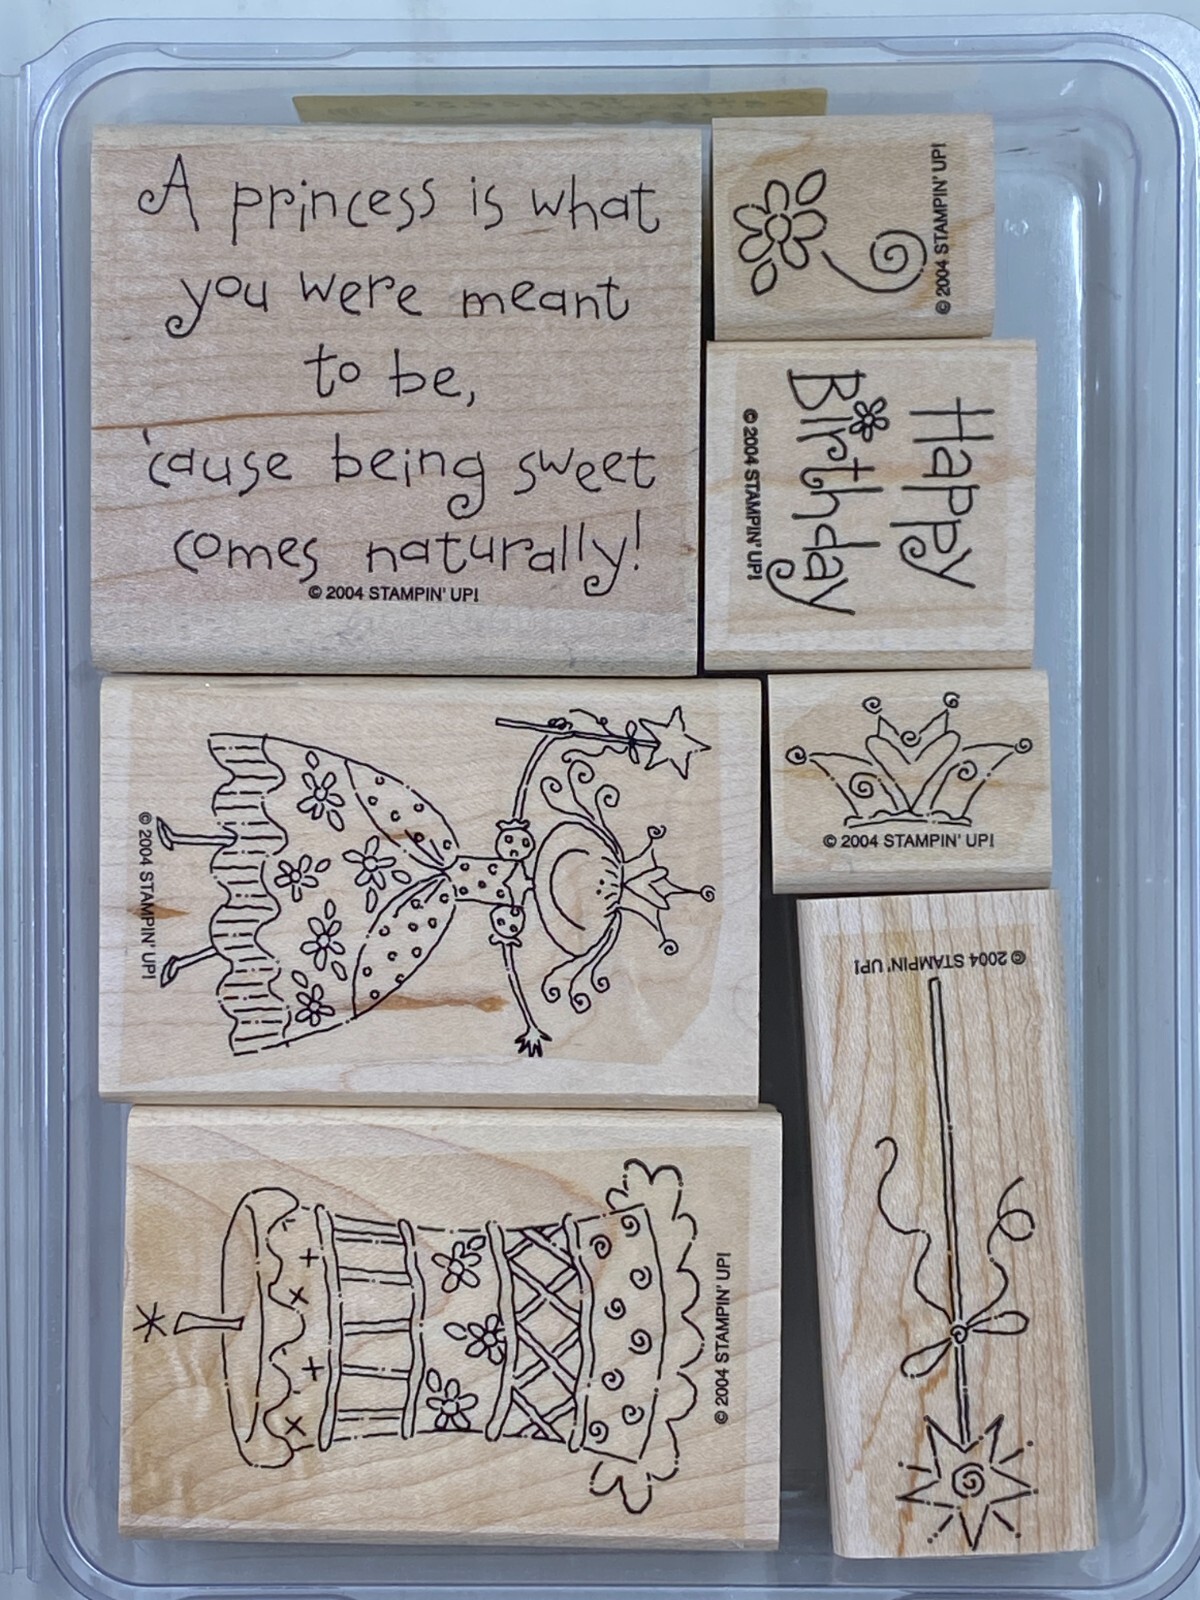 A princess is what
you were meant
to be,
'cause being sweet
comes naturally!
© 2004 STAMPIN' UP!
© 2004 STAMPIN' UP!
Happy
Birthday
© 2004 STAMPIN' UP!
© 2004 STAMPIN' UP!
© 2004 STAMPIN' UP!
© 2004 STAMPIN' UP!
© 2004 STAMPIN' UP!